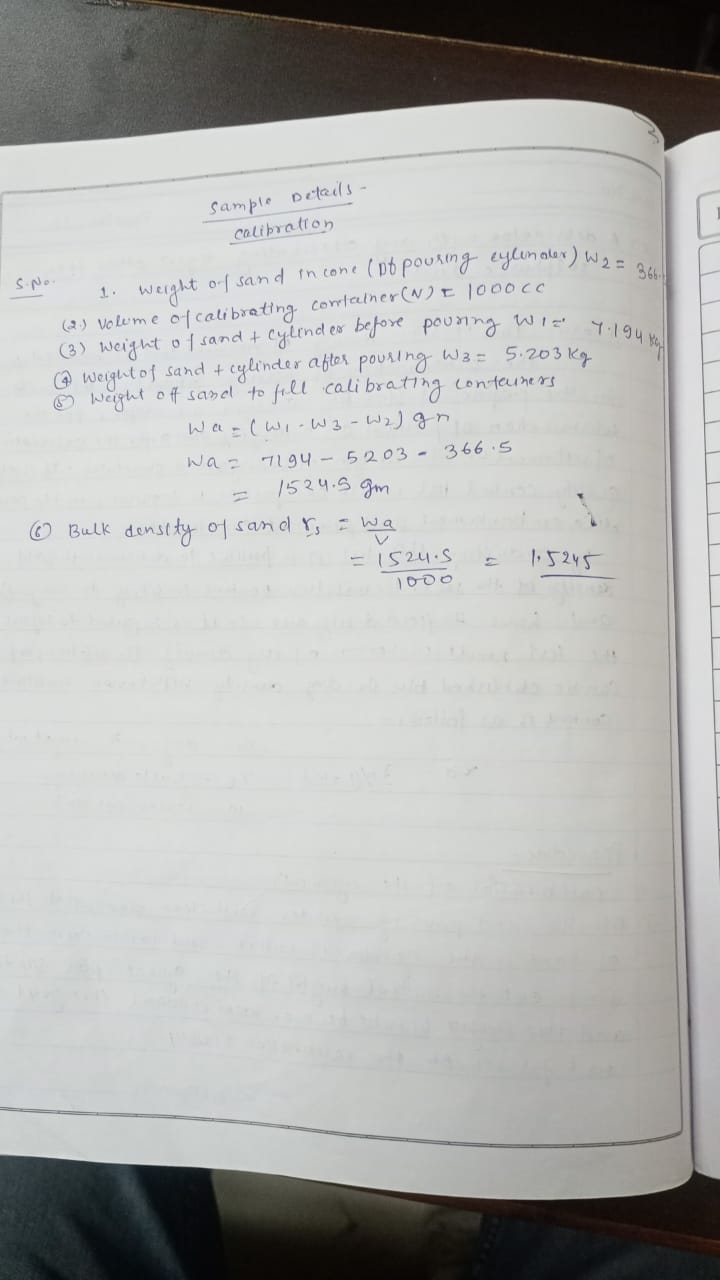 Sample Details -
calibration
S.No.
1. Weight of sand in cone (Of pouring cylinder) W2 = 366.
(2.) Volume of calibrating container (V) = 1000 CC
(3) Weight of sand + Cylinder before pouring W1 = 7.194 Kg
(4) Weight of sand + cylinder after pouring W3 = 5.203 Kg
(5) Weight off sand to fill calibrating containers
Wa = (W1 - W3 - W2) gn
Wa = 7194 - 5203 - 366.5
= 1524.5 gm
(6) Bulk density of sand rs = Wa
V
= 1524.5 = 1.5245
1000